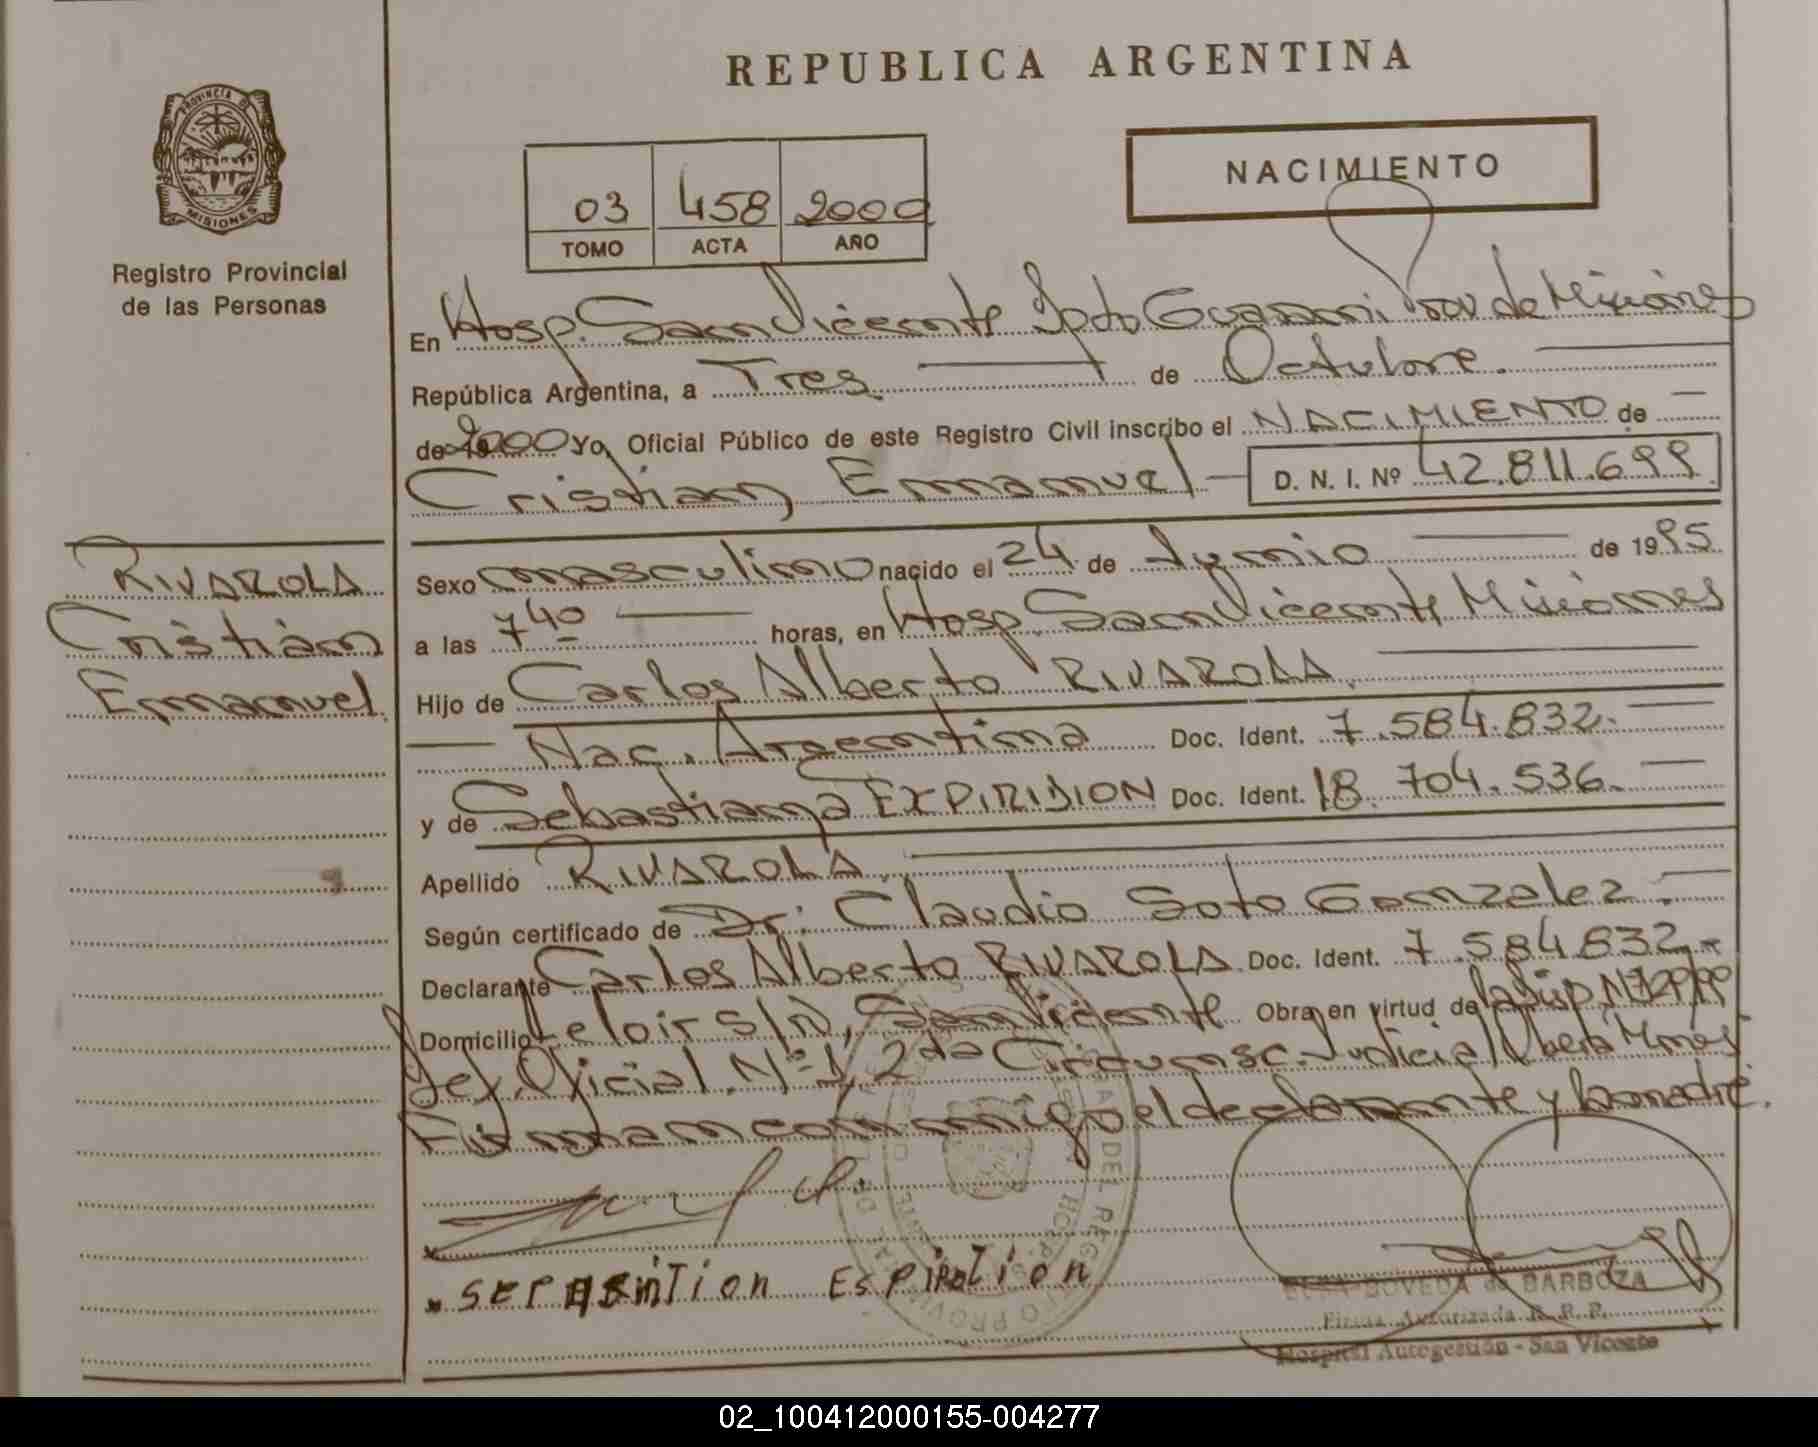 REPUBLICA ARGENTINA
PROVINCIA DE
MISIONES
Registro Provincial
de las Personas
03 458 2000
TOMO ACTA AÑO
NACIMIENTO
En Hosp. San Vicente Dpto Guarani Prov de Misiones
República Argentina, a Tres de Octubre.
de 2000 Yo, Oficial Público de este Registro Civil inscribo el NACIMIENTO de
Cristian Emanuel D. N. I. Nº 42.811.699
RIVAROLA
Cristian
Emanuel
Sexo masculino nacido el 24 de Junio de 1995
a las 7 40 horas, en Hosp. San Vicente Misiones
Hijo de Carlos Alberto RIVAROLA.
Nac. Argentina Doc. Ident. 7.584.832.
y de Sebastiana EXPIRIDION Doc. Ident. 18.704.536.
Apellido RIVAROLA.
Según certificado de Dr. Claudio Soto Gonzalez.
Declarante Carlos Alberto RIVAROLA Doc. Ident. 7.584.832.
Domicilio Leloir S/N, San Vicente Obra en virtud de la Disp N°
Def. Oficial Nº 1, 2da Circunsc. Judicial Oberá Mnes
Firman conmigo el declarante y la madre.
ESPIRATION
ELSA BOVEDA de BARBOZA
Firma Autorizada R. R. P.
Hospital Autogestión - San Vicente
02_100412000155-004277